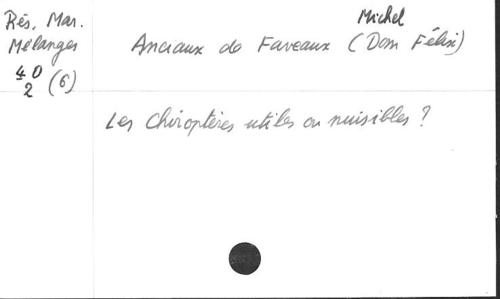 Rés. Mar.
Mélanges
40 (6)
2
Michel
Anciaux de Faveaux (Dom Félix)
Les Chiroptères utiles ou nuisibles ?